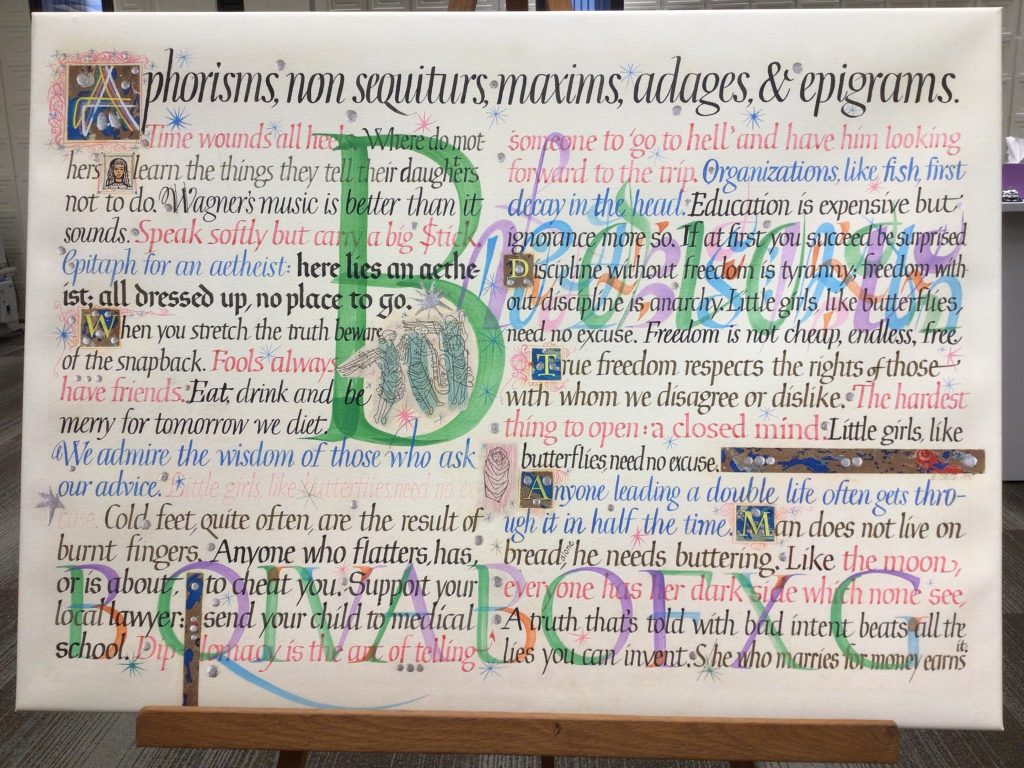 Aphorisms, non sequiturs, maxims, adages, & epigrams.
Time wounds all heels. Where do mot-
hers learn the things they tell their daughters
not to do. Wagner's music is better than it
sounds. Speak softly but carry a big $tick.
Epitaph for an aetheist: here lies an aethe-
ist; all dressed up, no place to go.
When you stretch the truth beware
of the snapback. Fools always
have friends. Eat, drink and be
merry for tomorrow we diet.
We admire the wisdom of those who ask
our advice. Little girls, like butterflies need no ex
cuse. Cold feet, quite often, are the result of
burnt fingers. Anyone who flatters, has,
or is about, to cheat you. Support your
local lawyer: send your child to medical
school. Diplomacy is the art of telling
someone to 'go to hell' and have him looking
forward to the trip. Organizations, like fish, first
decay in the head. Education is expensive but
ignorance more so. If at first you succeed be surprised
Discipline without freedom is tyranny; freedom with-
out discipline is anarchy. Little girls, like butterflies,
need no excuse. Freedom is not cheap, endless, free
True freedom respects the rights of those
with whom we disagree or dislike. The hardest
thing to open: a closed mind. Little girls, like
butterflies need no excuse.
Anyone leading a double life often gets thro-
ugh it in half the time. Man does not live on
bread alone, he needs buttering. Like the moon,
everyone has her dark side which none see,
A truth that's told with bad intent beats all the
lies you can invent. S/he who marries for money earns
it.
B
BQIVABOEXG